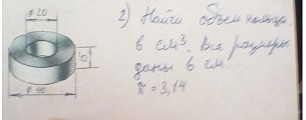 ø 20
15
ø 40
2) Найти объем кольца
в см³. Все размеры
даны в см.
π = 3,14